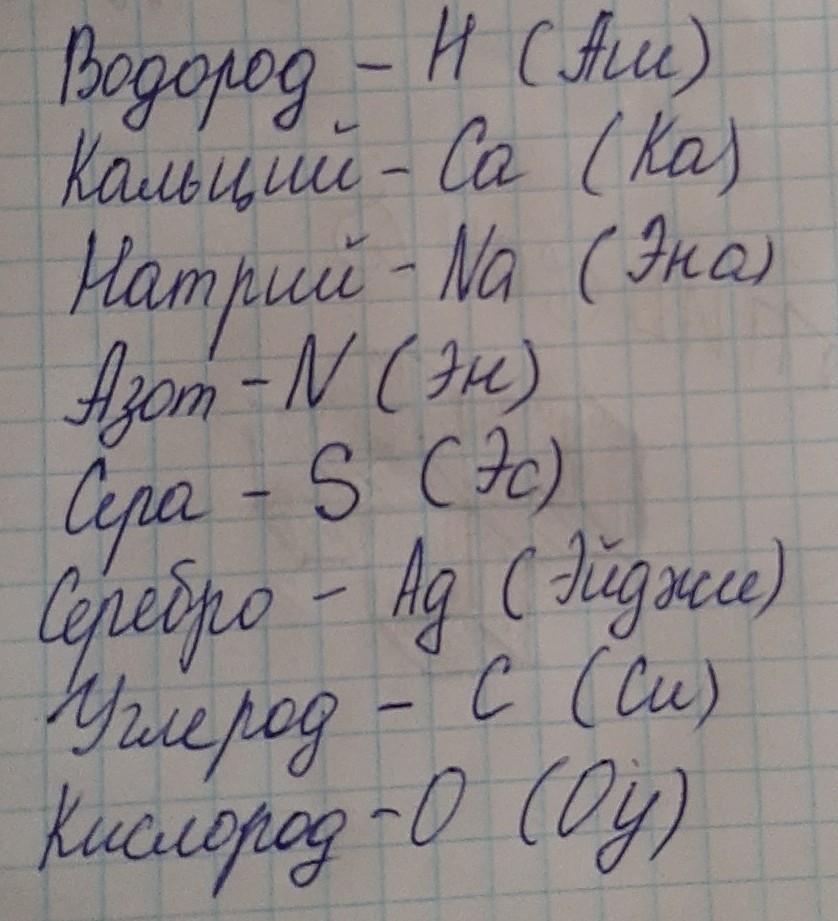 Водород - H (Аш)
Кальций - Ca (Ка)
Натрий - Na (Эна)
Азот - N (Эн)
Сера - S (Эс)
Серебро - Ag (Эйджи)
Углерод - C (Си)
Кислород - O (Оу)